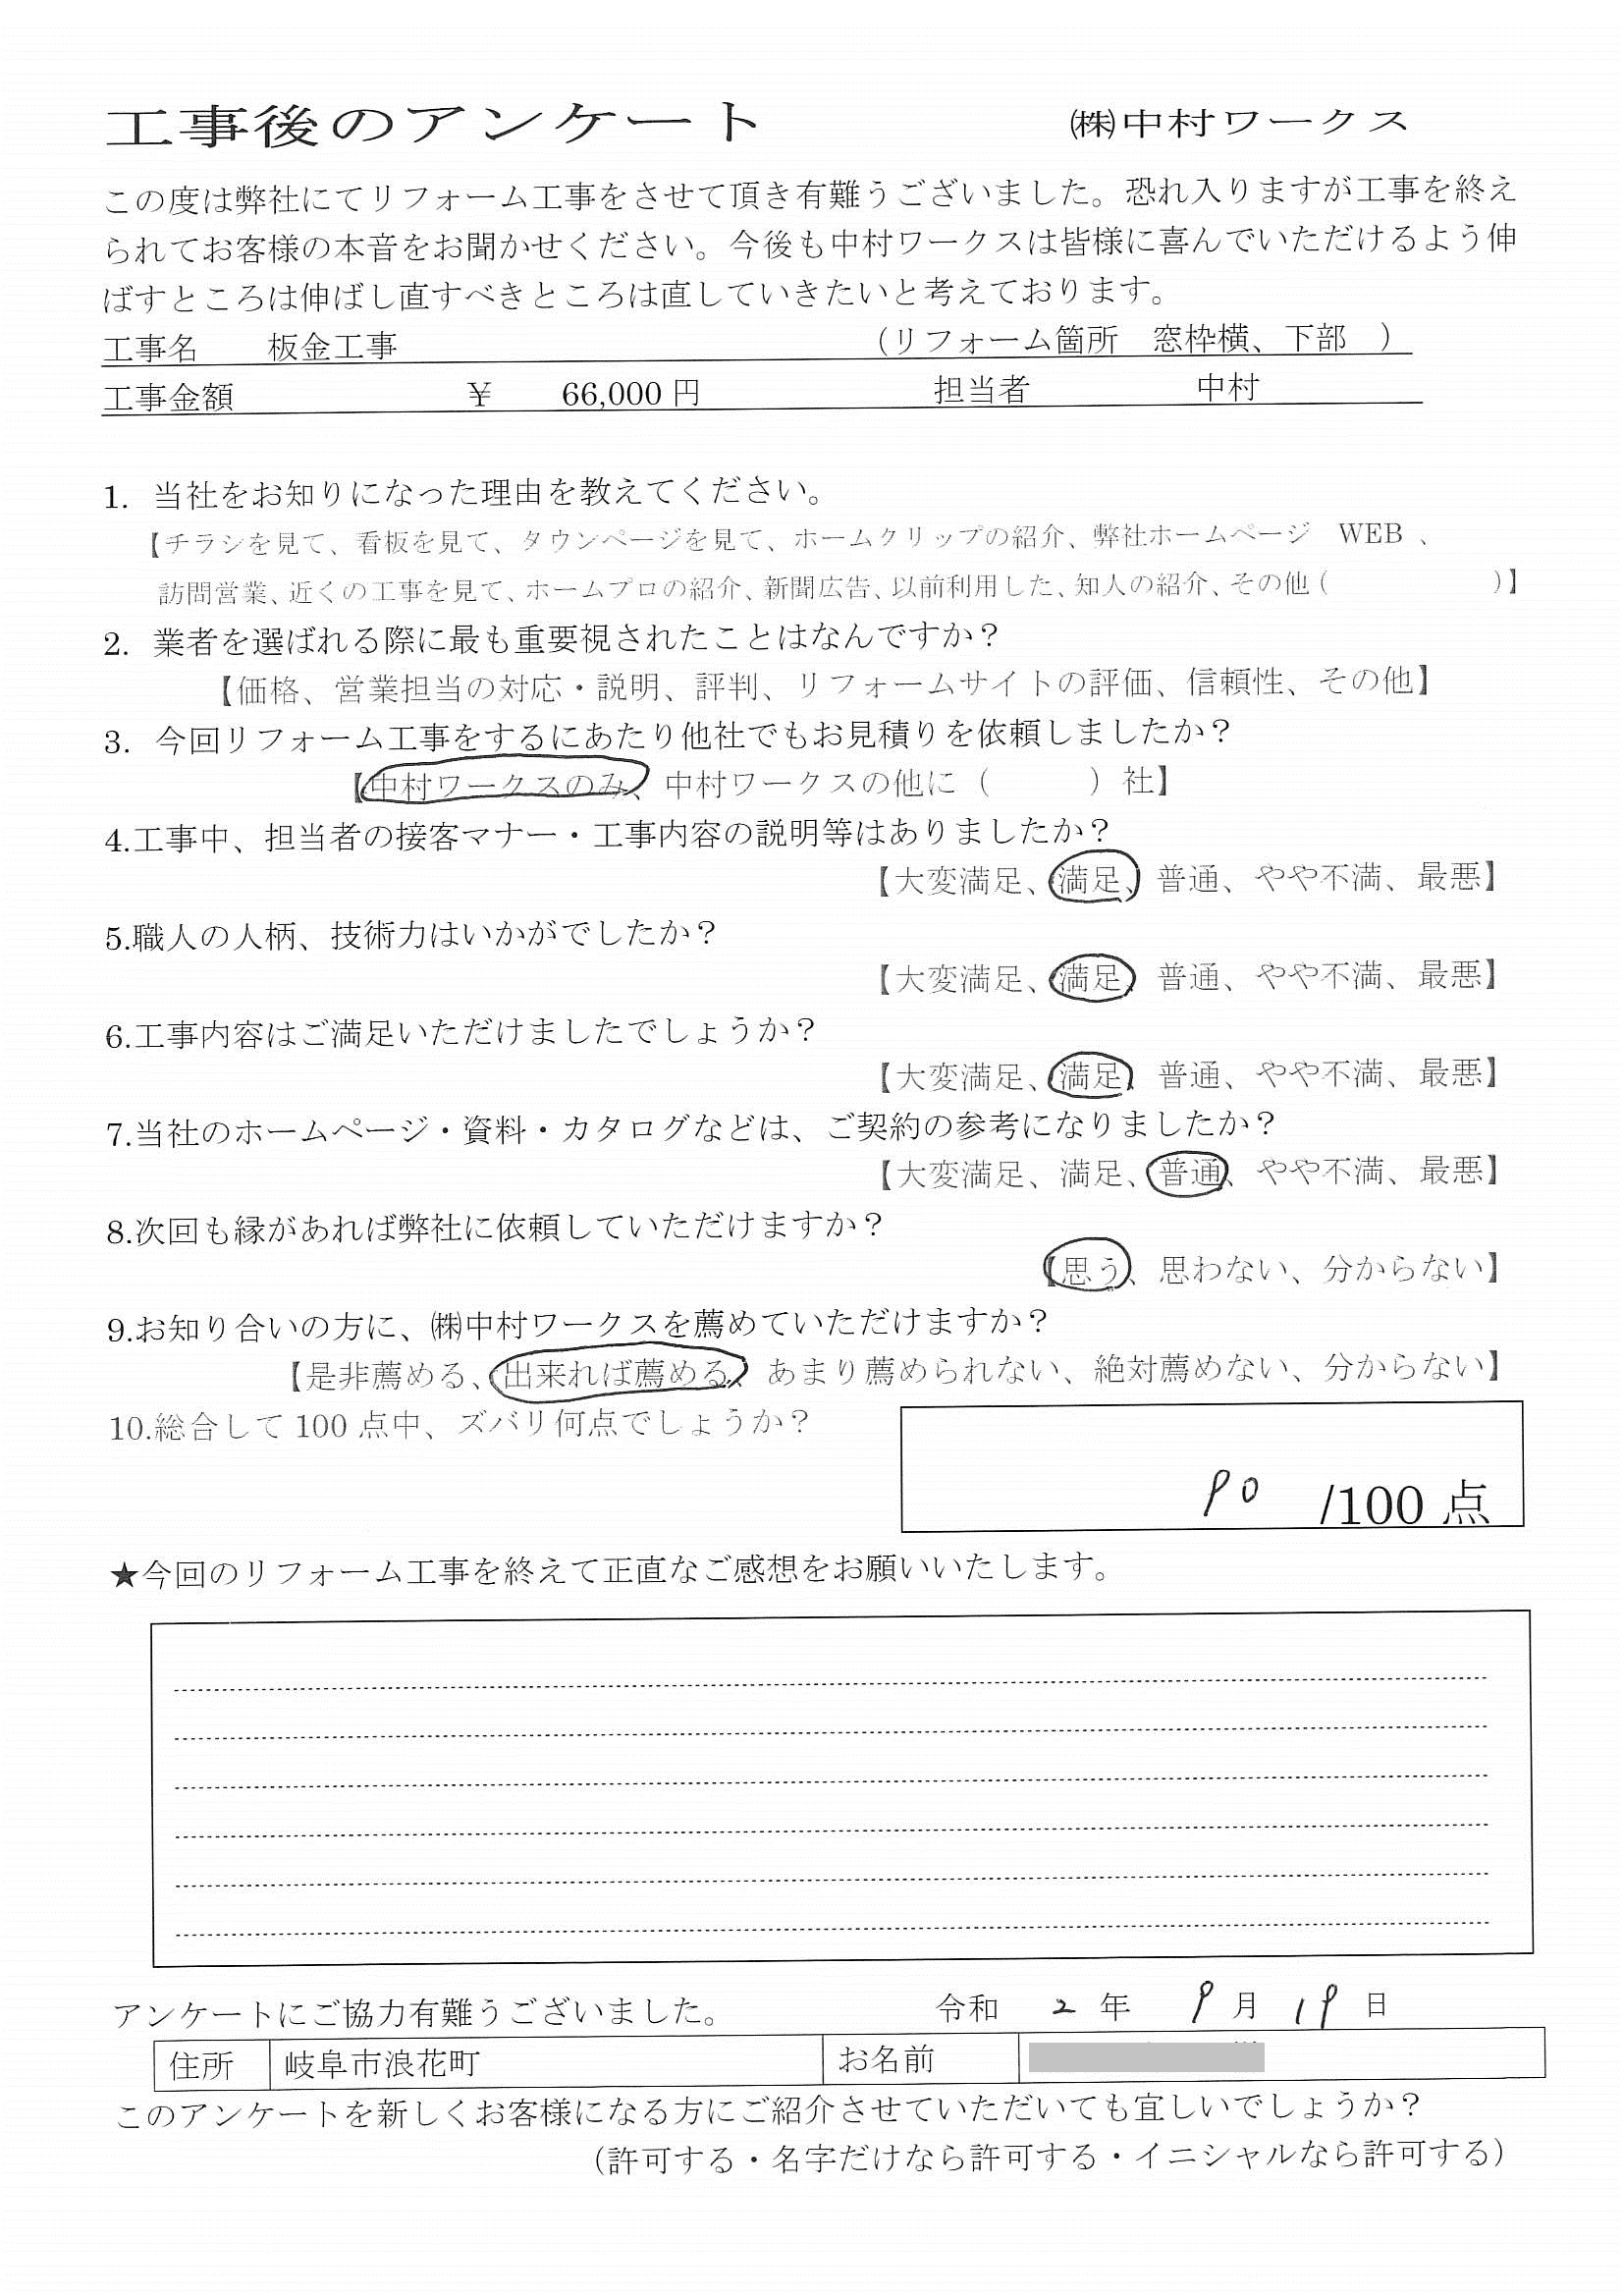 工事後のアンケート　㈱中村ワークス
この度は弊社にてリフォーム工事をさせて頂き有難うございました。恐れ入りますが工事を終え
られてお客様の本音をお聞かせください。今後も中村ワークスは皆様に喜んでいただけるよう伸
ばすところは伸ばし直すべきところは直していきたいと考えております。
工事名　板金工事　（リフォーム箇所　窓枠横、下部　）
工事金額　￥　66,000 円　担当者　中村
1. 当社をお知りになった理由を教えてください。
【チラシを見て、看板を見て、タウンページを見て、ホームクリップの紹介、弊社ホームページ　WEB 、
訪問営業、近くの工事を見て、ホームプロの紹介、新聞広告、以前利用した、知人の紹介、その他（　　　　　）】
2. 業者を選ばれる際に最も重要視されたことはなんですか？
【価格、営業担当の対応・説明、評判、リフォームサイトの評価、信頼性、その他】
3. 今回リフォーム工事をするにあたり他社でもお見積りを依頼しましたか？
【中村ワークスのみ、中村ワークスの他に（　　　）社】
4.工事中、担当者の接客マナー・工事内容の説明等はありましたか？
【大変満足、満足、普通、やや不満、最悪】
5.職人の人柄、技術力はいかがでしたか？
【大変満足、満足、普通、やや不満、最悪】
6.工事内容はご満足いただけましたでしょうか？
【大変満足、満足、普通、やや不満、最悪】
7.当社のホームページ・資料・カタログなどは、ご契約の参考になりましたか？
【大変満足、満足、普通、やや不満、最悪】
8.次回も縁があれば弊社に依頼していただけますか？
【思う、思わない、分からない】
9.お知り合いの方に、㈱中村ワークスを薦めていただけますか？
【是非薦める、出来れば薦める、あまり薦められない、絶対薦めない、分からない】
10.総合して 100 点中、ズバリ何点でしょうか？
90 /100 点
★今回のリフォーム工事を終えて正直なご感想をお願いいたします。
アンケートにご協力有難うございました。　令和 2 年 9 月 19 日
住所　岐阜市浪花町　お名前
このアンケートを新しくお客様になる方にご紹介させていただいても宜しいでしょうか？
（許可する・名字だけなら許可する・イニシャルなら許可する）